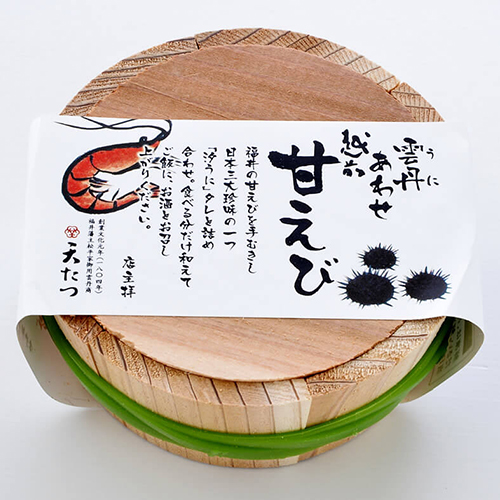 雲丹
うに
あわせ
越前
甘えび
福井の甘えびを手むきし
日本三大珍味の一つ
「汐うに」タレと詰め
合わせ。食べる分だけ和えて
ご飯に、お酒とお召し
上がりください。
店主拝
創業文化元年(一八〇四年)
福井藩主松平家御用雲丹商
天たつ